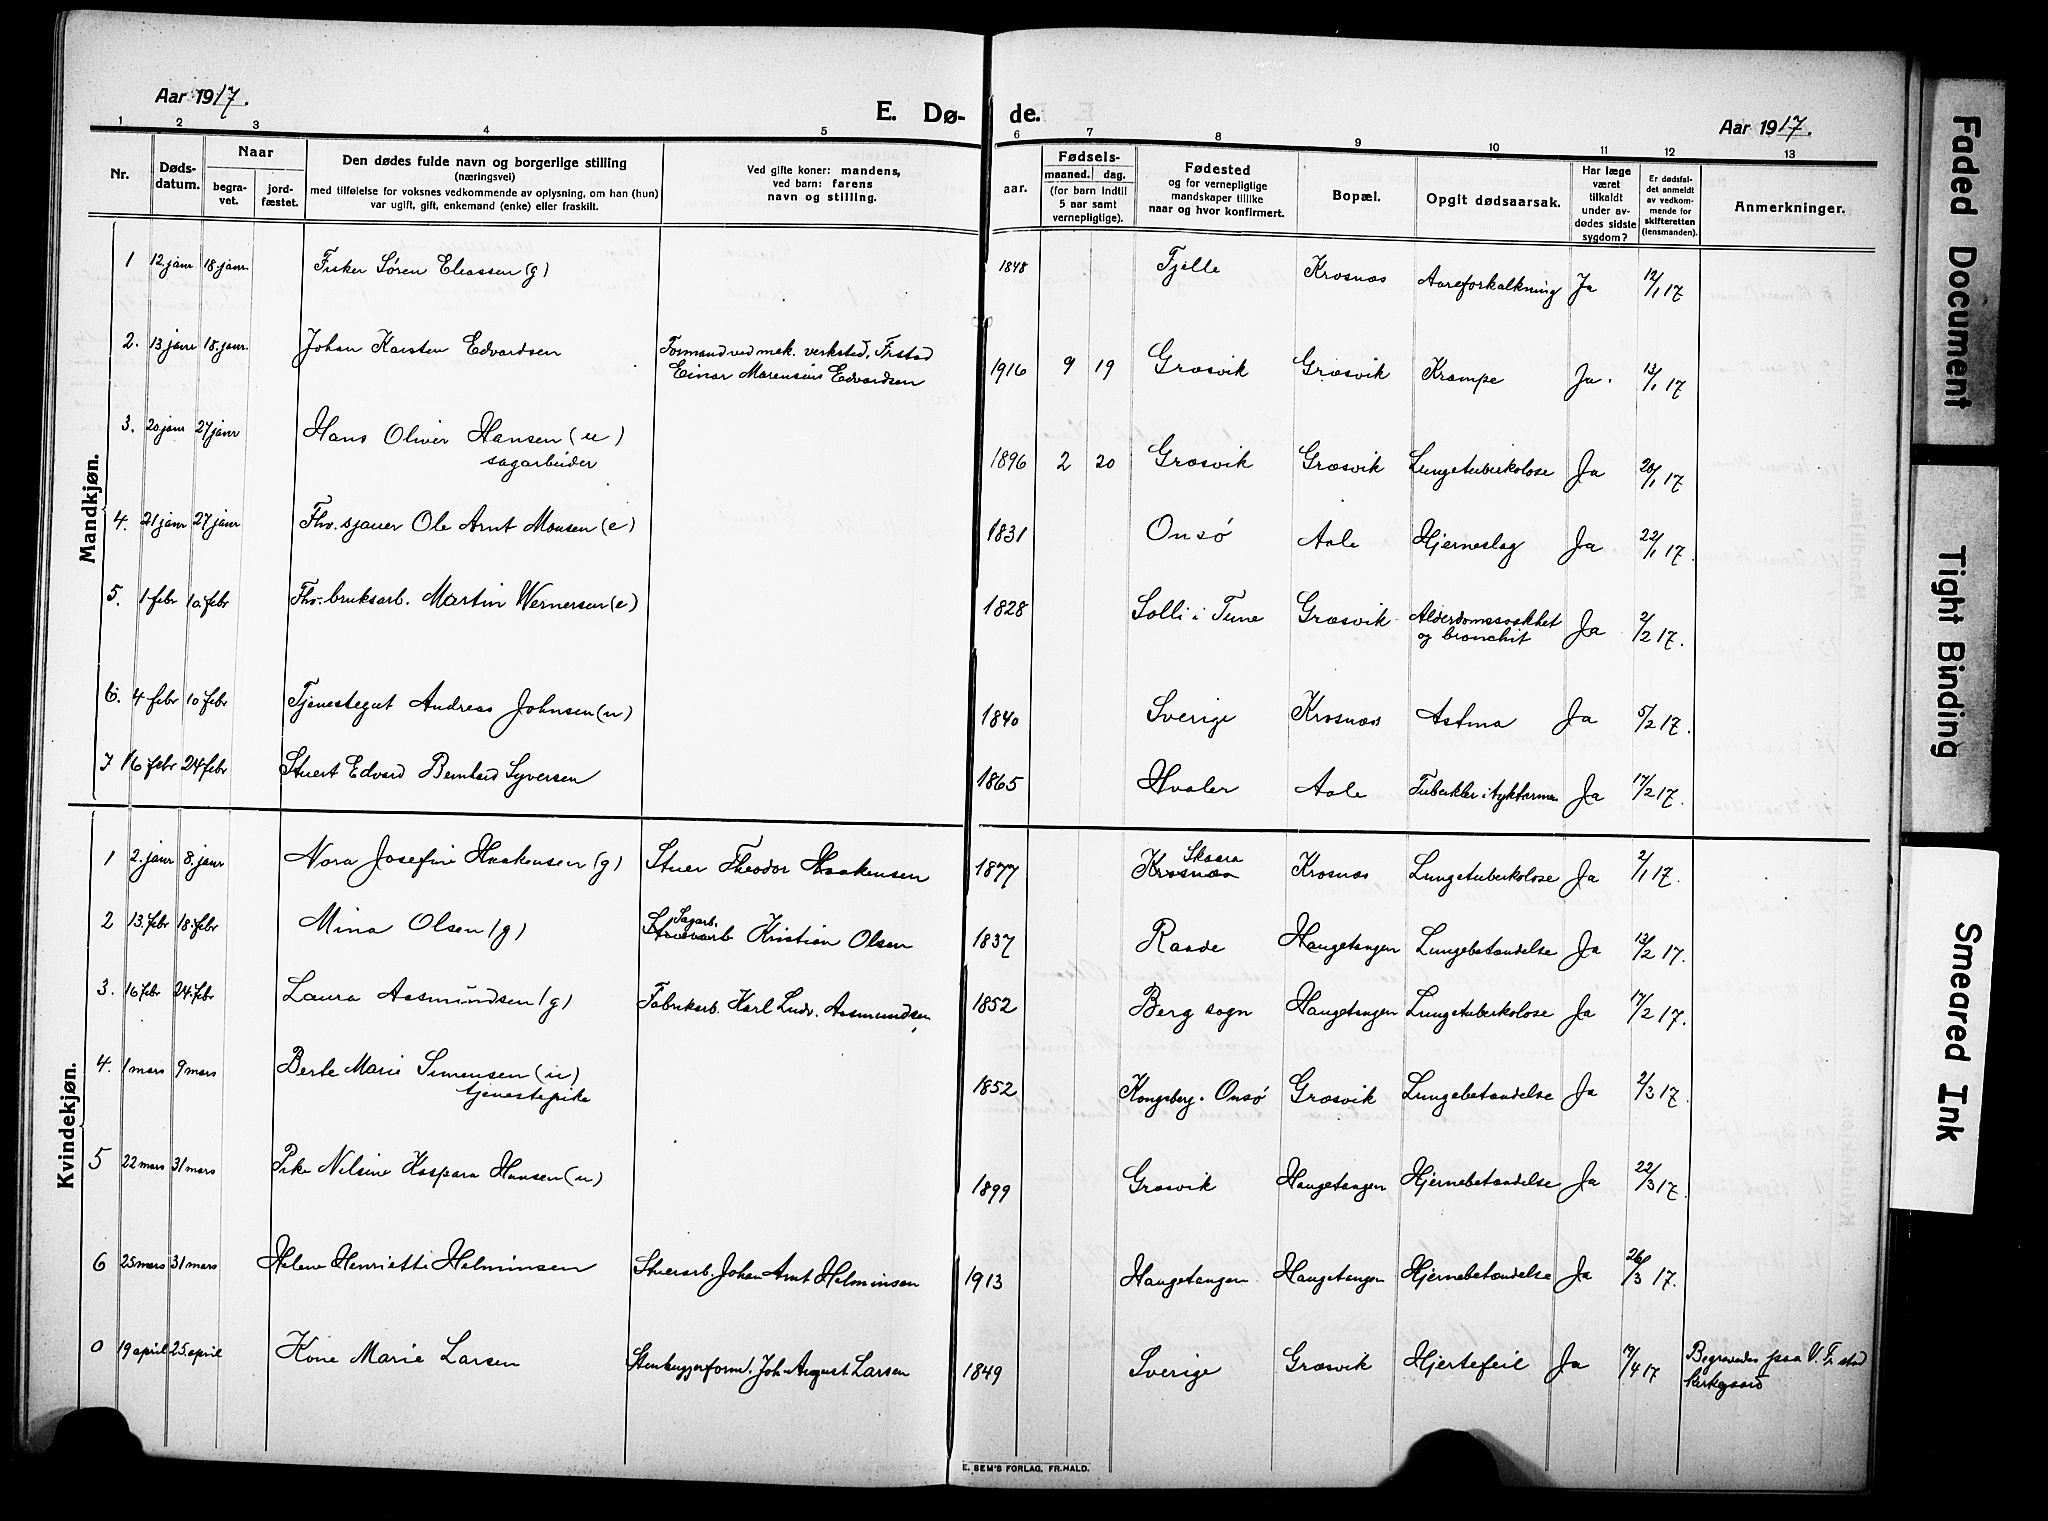 Aar 1917.
E. Dø- de.
Aar 1917.
1 2 3 4 5 6 7 8 9 10 11 12 13
Nr.
Døds-
datum.
Naar
begra-
vet.
jord-
fæstet.
Den dødes fulde navn og borgerlige stilling
(næringsvei)
med tilføielse for voksnes vedkommende av oplysning, om han (hun)
var ugift, gift, enkemand (enke) eller fraskilt.
Ved gifte koner: mandens,
ved barn: farens
navn og stilling.
aar.
Fødsels-
maaned. dag.
(for barn indtil
5 aar samt
vernepligtige).
Fødested
og for vernepligtige
mandskaper tillike
naar og hvor konfirmert.
Bopæl.
Opgit dødsaarsak.
Har læge
været
tilkaldt
under av-
dødes sidste
sygdom?
Er dødsfal-
det anmeldt
av vedkom-
mende for
skifteretten
(lensmanden).
Anmerkninger.
Mandkjøn.
1 12. janr 18. janr. Fisker Søren Eliassen (g) 1848 Fjelle Krosnæs Aareforkalkning Ja 12/1 17
2. 13 janr 18. janr. Johan Karsten Edvardsen Formand ved mek. verksted, Frstad
Einar Marensius Edvardsen 1916 9 19 Græsvik Græsvik Krampe Ja. 13/1 17
3. 20 janr 27 janr Hans Oliver Hansen (u)
sagarbeider 1896 2 20 Græsvik Græsvik Lungetuberkolose Ja 20/1 17
4. 21 janr 27 janr Fhv. sjauer Ole Arnt Monsen (e) 1831 Onsø Aale Hjerneslag Ja 22/1 17.
5. 1 febr 10. febr Fhv. bruksarb. Martin Wernersen (e) 1828 Solli i Tune Græsvik Alderdomssvakhet
og bronchit Ja 2/2 17.
6. 4 febr 10 febr Tjenestegut Andreas Johnsen (u) 1840 Sverige Krosnæs Astma Ja 5/2 17.
7 16 febr 24 febr Stuert Edvard Bernhard Syversen 1865 Hvaler Aale Tuberkler i tyktarmen Ja 17/2 17.
Kvindekjøn.
1 2. janr 8. janr Nora Josefine Haakensen (g) Stuer Theodor Haakensen 1877 Skaara
Krosnæs Krosnæs Lungetuberkolose Ja 2/1 17.
2 13. febr 18. febr Mina Olsen (g) Sagarb.
Kristian Olsen 1837 Raade Haugetangen Lungebetændelse Ja 13/2 17.
3. 16 febr 24. febr Laura Aasmundsen (g) Fabrikarb. Karl Ludv. Aasmundsen 1852 Berg sogn Haugetangen Lungetuberkolose Ja 17/2 17.
4. 1 mars 9 mars Berte Marie Simensen (u)
tjenestepike 1852 Kongsberg. Onsø Græsvik Lungebetændelse Ja 2/3 17.
5 22 mars 31 mars Pike Nilsine Kaspara Hansen (u) 1899 Græsvik Haugetangen Hjernebetændelse Ja 22/3 17.
6 25 mars 31 mars Helene Henriette Helminsen Stuerarb. Johan Arnt Helminsen 1913 Haugetangen Haugetangen Hjernebetændelse Ja 26/3 17.
0 19 april 25. april Kone Marie Larsen Stenhuggerform. Joh. August Larsen 1849 Sverige Græsvik Hjertefeil Ja 19/4 17 Begravedes paa V. Frstad
kirkegaard
E. SEM'S FORLAG, FR.HALD.
Faded Document
Tight Binding
Smeared Ink